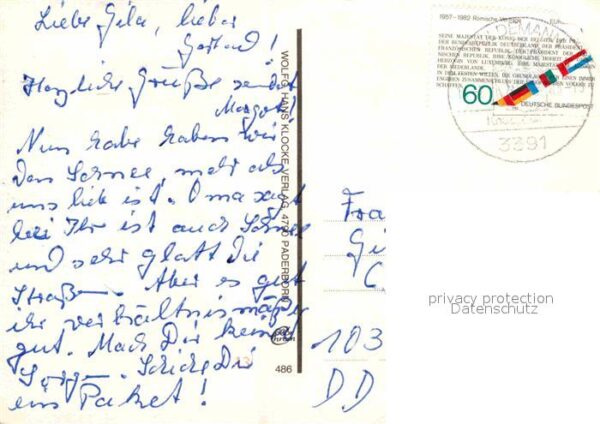 Liebe Gila, lieber
Gerhard!
Herzliche Grüße sendet
Margot!
Nun habe haben wir
den Schnee, mehr als
uns lieb ist. Oma sagt
bei Ihr ist auch Schnee
und sehr glatt die
Straßen. Aber es geht
ihr verhältnismäßig
gut. Mach Dir keine
Sorgen. Schicke Dir
ein Paket!
WOLFG. HANS KLOCKE VERLAG, 4790 PADERBORN
486
1957-1982 Römische Verträge EUR
SEINE MAJESTÄT DER KÖNIG DER BELGIER, DER PRÄ-
DER BUNDESREPUBLIK DEUTSCHLAND, DER PRÄSIDENT
FRANZÖSISCHEN REPUBLIK, DER PRÄSIDENT DER
NISCHEN REPUBLIK, IHRE KÖNIGLICHE HOHEIT
HERZOGIN VON LUXEMBURG, IHRE MAJESTÄT
DER NIEDERLANDE,
IN DEM FESTEN WILLEN, DIE GRUNDLAGEN IMMER
ENGEREN ZUSAMMENSCHLUSS DER VÖLKER ZU
SCHAFFEN
60
DEUTSCHE BUNDESPOST
3391
Fra
Gi
C
103
DD
privacy protection
Datenschutz